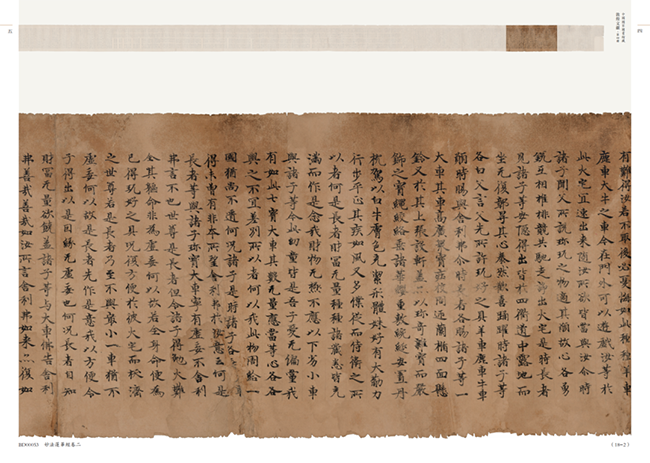 四
五
有難得汝若不取後必憂悔如此種種羊車
鹿車牛車今在門外可以遊戲汝等於
此火宅宜速出來隨汝所欲皆當與汝尒時
諸子聞父所說珎玩之物適其願故心各勇
銳互相推排競共馳走爭出火宅是時長者
見諸子等安隱得出皆於四衢道中露地而
坐无復障其心泰然歡喜踊躍時諸子等
各白父言父先所許玩好之具羊車鹿車牛車
願時賜與舍利弗尒時長者各賜諸子等一
大車其車高廣眾寶莊校周迊欄楯四面懸
鈴又於其上張設幰盖亦以珎奇雜寶而嚴
飾之寶繩絞絡垂諸華纓重敷綩綖安置丹
枕駕以白牛膚色充潔形體姝好有大筋力
行步平正其疾如風又多僕從而侍衛之所
以者何是長者財富无量種種諸藏悉皆充
溢而作是念我財物无極不應以下劣小車
與諸子等今此幼童皆是吾子愛无偏黨我
有如是七寶大車其數无量應當等心各各
與之不宜差別所以者何以我此物周給一
國猶尚不匱何況諸子是時諸子各乘大車
得未曾有非本所望舍利弗於汝意云何是
長者等與諸子珎寶大車寧有虛妄不舍利
弗言不也世尊是長者但令諸子得免火難
全其軀命非為虛妄何以故若全身命便為
已得玩好之具況復方便於彼火宅而拔濟
之世尊若是長者乃至不與最小一車猶不
虛妄何以故是長者先作是意我以方便令
子得出以是因緣无虛妄也何況長者自知
財富无量欲饒益諸子等與大車佛告舍利
弗善哉善哉如汝所言舍利弗如來亦復如
BD00053 妙法蓮華經卷二
(18-2)